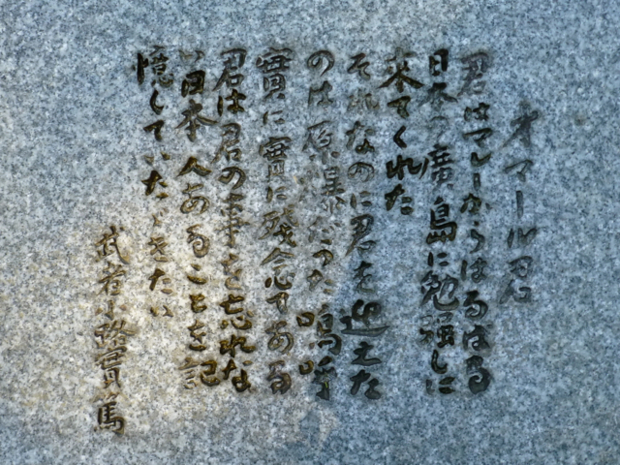 オマール君
君はマレーからはるばる
日本の廣島に勉強しに
来てくれた
それなのに君を迎えた
のは原爆だった嗚呼
實に實に残念である
君は君の事を忘れな
い日本人あることを記
憶していたゞきたい
武者小路實篤